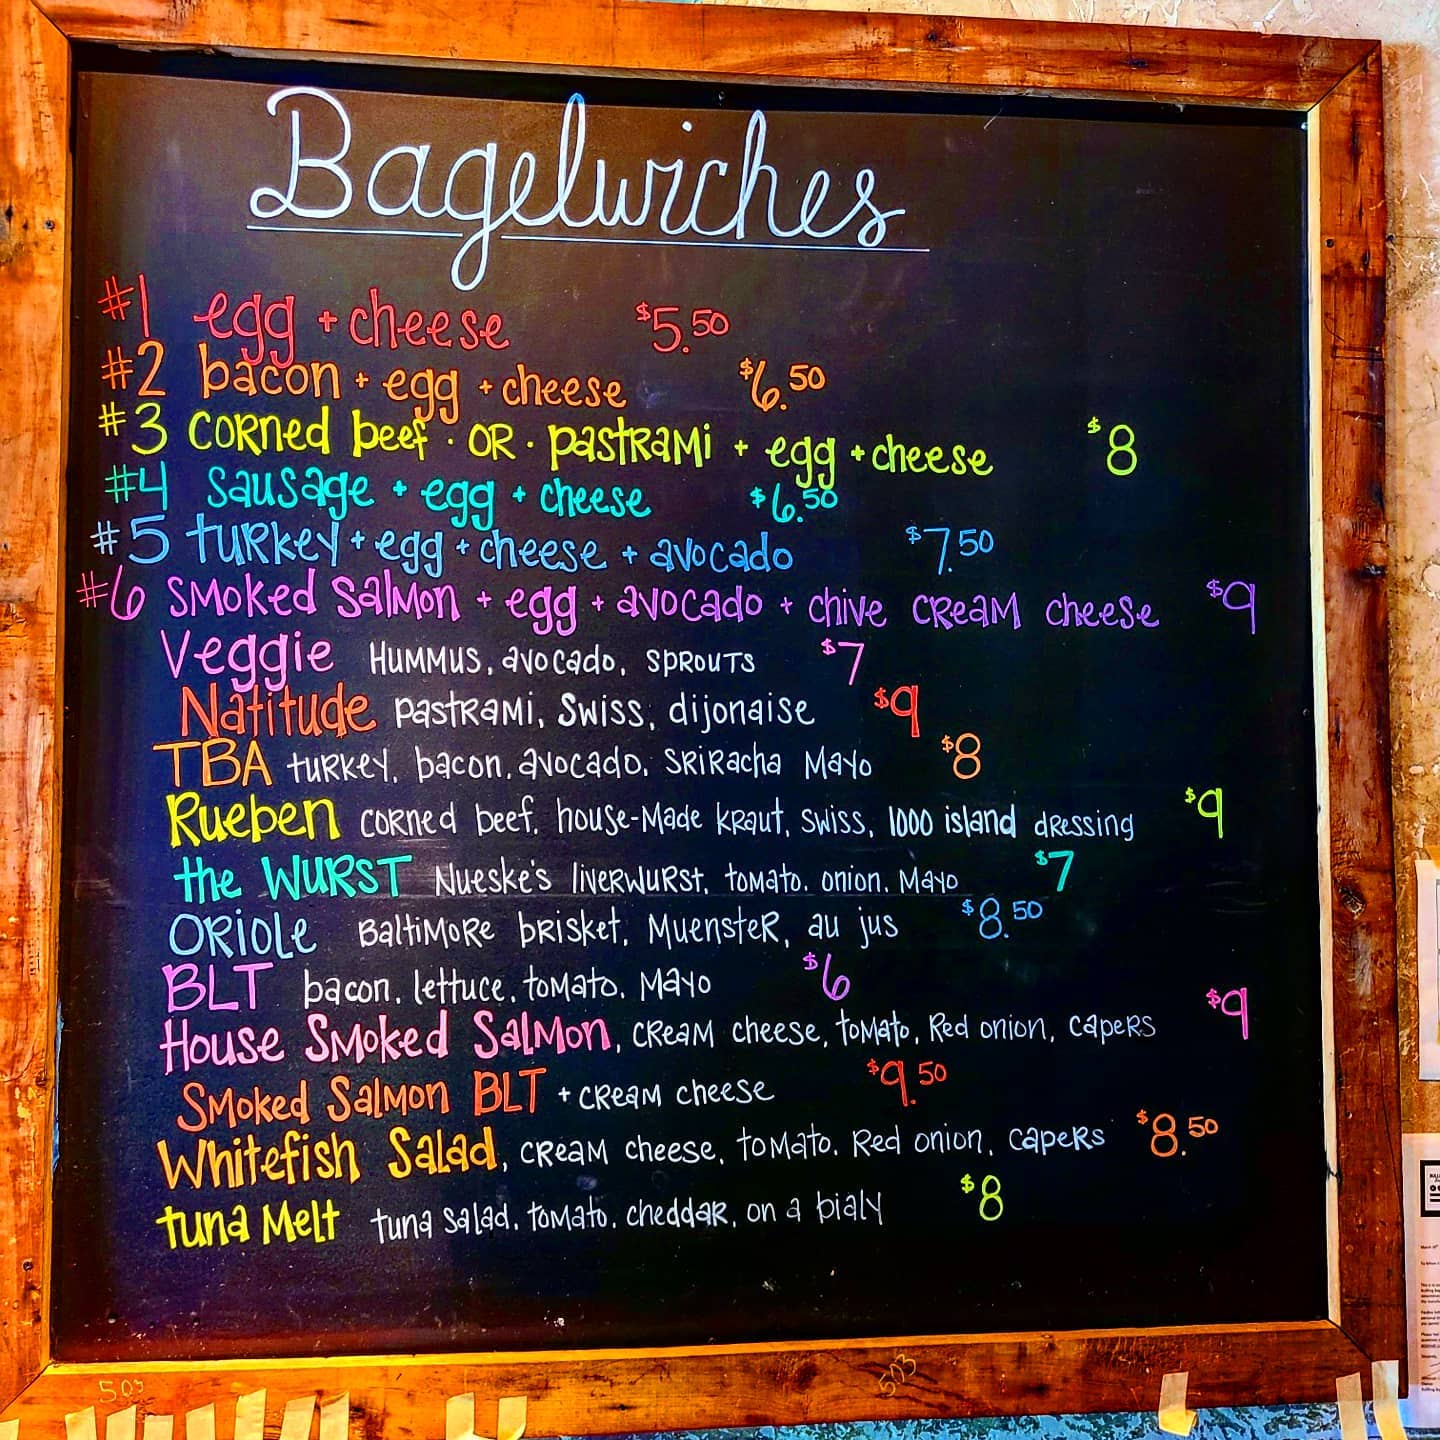 Bagelwiches
#1 egg + cheese $5.50
#2 bacon + egg + cheese $6.50
#3 corned beef · OR · pastrami + egg + cheese $8
#4 sausage + egg + cheese $6.50
#5 turkey + egg + cheese + avocado $7.50
#6 smoked salmon + egg + avocado + chive cream cheese $9
Veggie Hummus, avocado, sprouts $7
Natitude pastrami, Swiss, dijonaise $9
TBA turkey, bacon, avocado, sriracha mayo $8
Rueben corned beef, house-made kraut, swiss, 1000 island dressing $9
the WURST Nueske's liverwurst, tomato, onion, mayo $7
Oriole Baltimore brisket, Muenster, au jus $8.50
BLT bacon, lettuce, tomato, mayo $6
House Smoked Salmon, cream cheese, tomato, Red onion, capers $9
Smoked Salmon BLT + cream cheese $9.50
Whitefish Salad, cream cheese, tomato, Red onion, capers $8.50
tuna melt tuna salad, tomato, cheddar, on a bialy $8
503 503